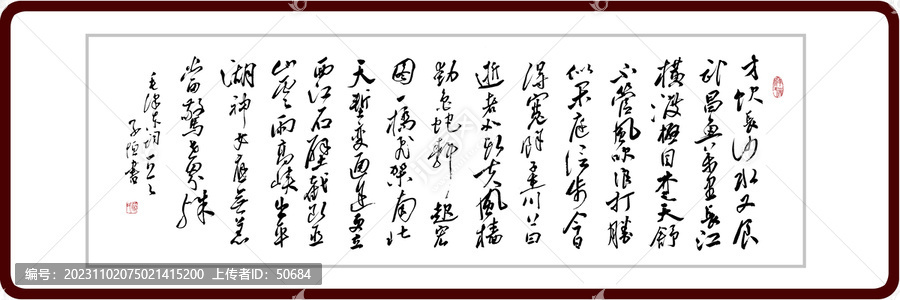 才饮長沙水又食
武昌魚万里長江
横渡极目楚天舒
不管風吹浪打勝
似闲庭信步今日
得寬馀子在川上曰
逝者如斯夫風樯
动龟蛇静起宏
图一橋飞架南北
天堑变通途更立
西江石壁截断巫
山雲雨高峡出平
湖神女应無恙
当驚世界殊
毛泽东词
书
编号：20231102075021415200 上传者ID：50684